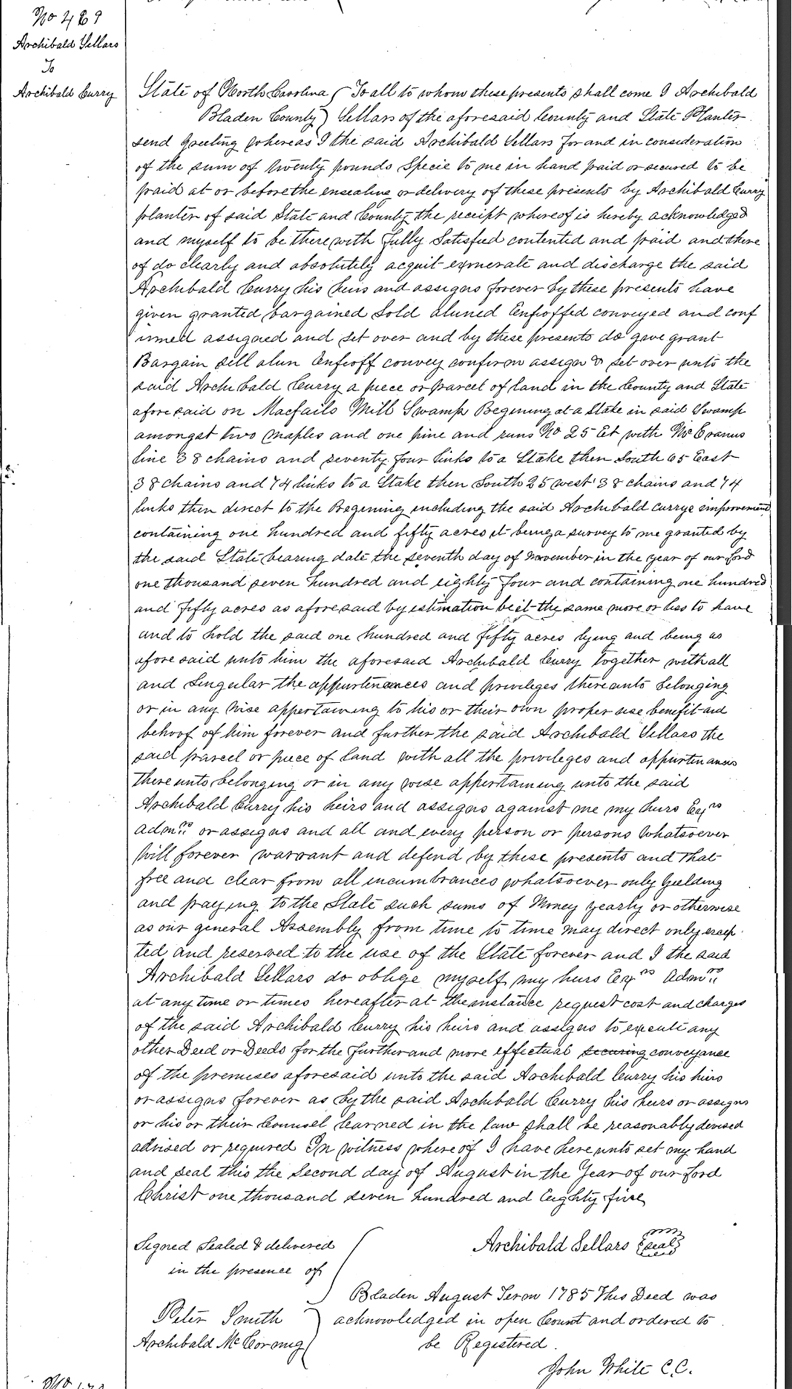 No 469
Archibald Sellars
To
Archibald Curry
State of North Carolina ( To all to whom these presents shall come I Archibald
Bladen County ) Sellars of the aforesaid County and State Planter
send greeting whereas I the said Archibald Sellars for and in consideration
of the sum of twenty pounds Specie to me in hand paid or secured to be
paid at or before the ensealing or delivery of these presents by Archibald Curry
planter of said State and County the receipt whereof is hereby acknowledged
and myself to be therewith fully Satisfied contented and paid and there
of do clearly and absolutely acquit exonerate and discharge the said
Archibald Curry his heirs and assigns forever by these presents have
given granted bargained Sold aliened Enfioffed conveyed and conf
irmed assigned and set over and by these presents do gave grant
Bargain sell alien Enfeoff convey confirm assign & set over unto the
said Archibald Curry a piece or parcel of land in the County and State
aforesaid on Macfails Mill Swamp Begining at a Stake in said Swamp
amongst two maples and one pine and runs No 25 Et with
line 38 chains and seventy four links to a Stake then South 65 East
38 chains and 74 links to a Stake then South 25 west 38 chains and 74
links then direct to the Begining including the said Archibald Currys improvement
containing one hundred and fifty acres it being a survey to me granted by
the said State bearing date the seventh day of November in the year of our lord
one thousand seven hundred and eighty four and containing one hundred
and fifty acres as aforesaid by estimation be it the same more or less to have
and to hold the said one hundred and fifty acres lying and being as
aforesaid unto him the aforesaid Archibald Curry together with all
and Singular the appurtenances and privileges thereunto belonging
or in any wise appertaining to his or their own proper use benefit and
behoof of him forever and further the said Archibald Sellars the
said parcel or piece of land with all the privileges and appurtenances
thereunto belonging or in any wise appertaining unto the said
Archibald Curry his heirs and assigns against me my heirs Exrs
admrs or assigns and all and every person or persons whatsoever
will forever warrant and defend by these presents and that
free and clear from all incumbrances whatsoever only yielding
and paying to the State such sums of Money yearly or otherwise
as our general Assembly from time to time may direct only excep
ted and reserved to the use of the State forever and I the said
Archibald Sellars do oblige myself my heirs Exrs Admrs
at any time or times hereafter at the instance request cost and charges
of the said Archibald Curry his heirs and assigns to execute any
other Deed or Deeds for the further and more effectual securing conveyance
of the premises aforesaid unto the said Archibald Curry his heirs
or assigns forever as by the said Archibald Curry his heirs or assigns
or his or their Counsel learned in the law shall be reasonably devised
advised or required In witness whereof I have hereunto set my hand
and seal this the Second day of August in the Year of our Lord
Christ one thousand seven hundred and Eighty five
Signed Sealed & delivered
in the presence of
Archibald Sellars (seal)
Peter Smith
Archibald McCormig
Bladen August Term 1785 This Deed was
acknowledged in open Court and ordered to
be Registered.
John White C.C.